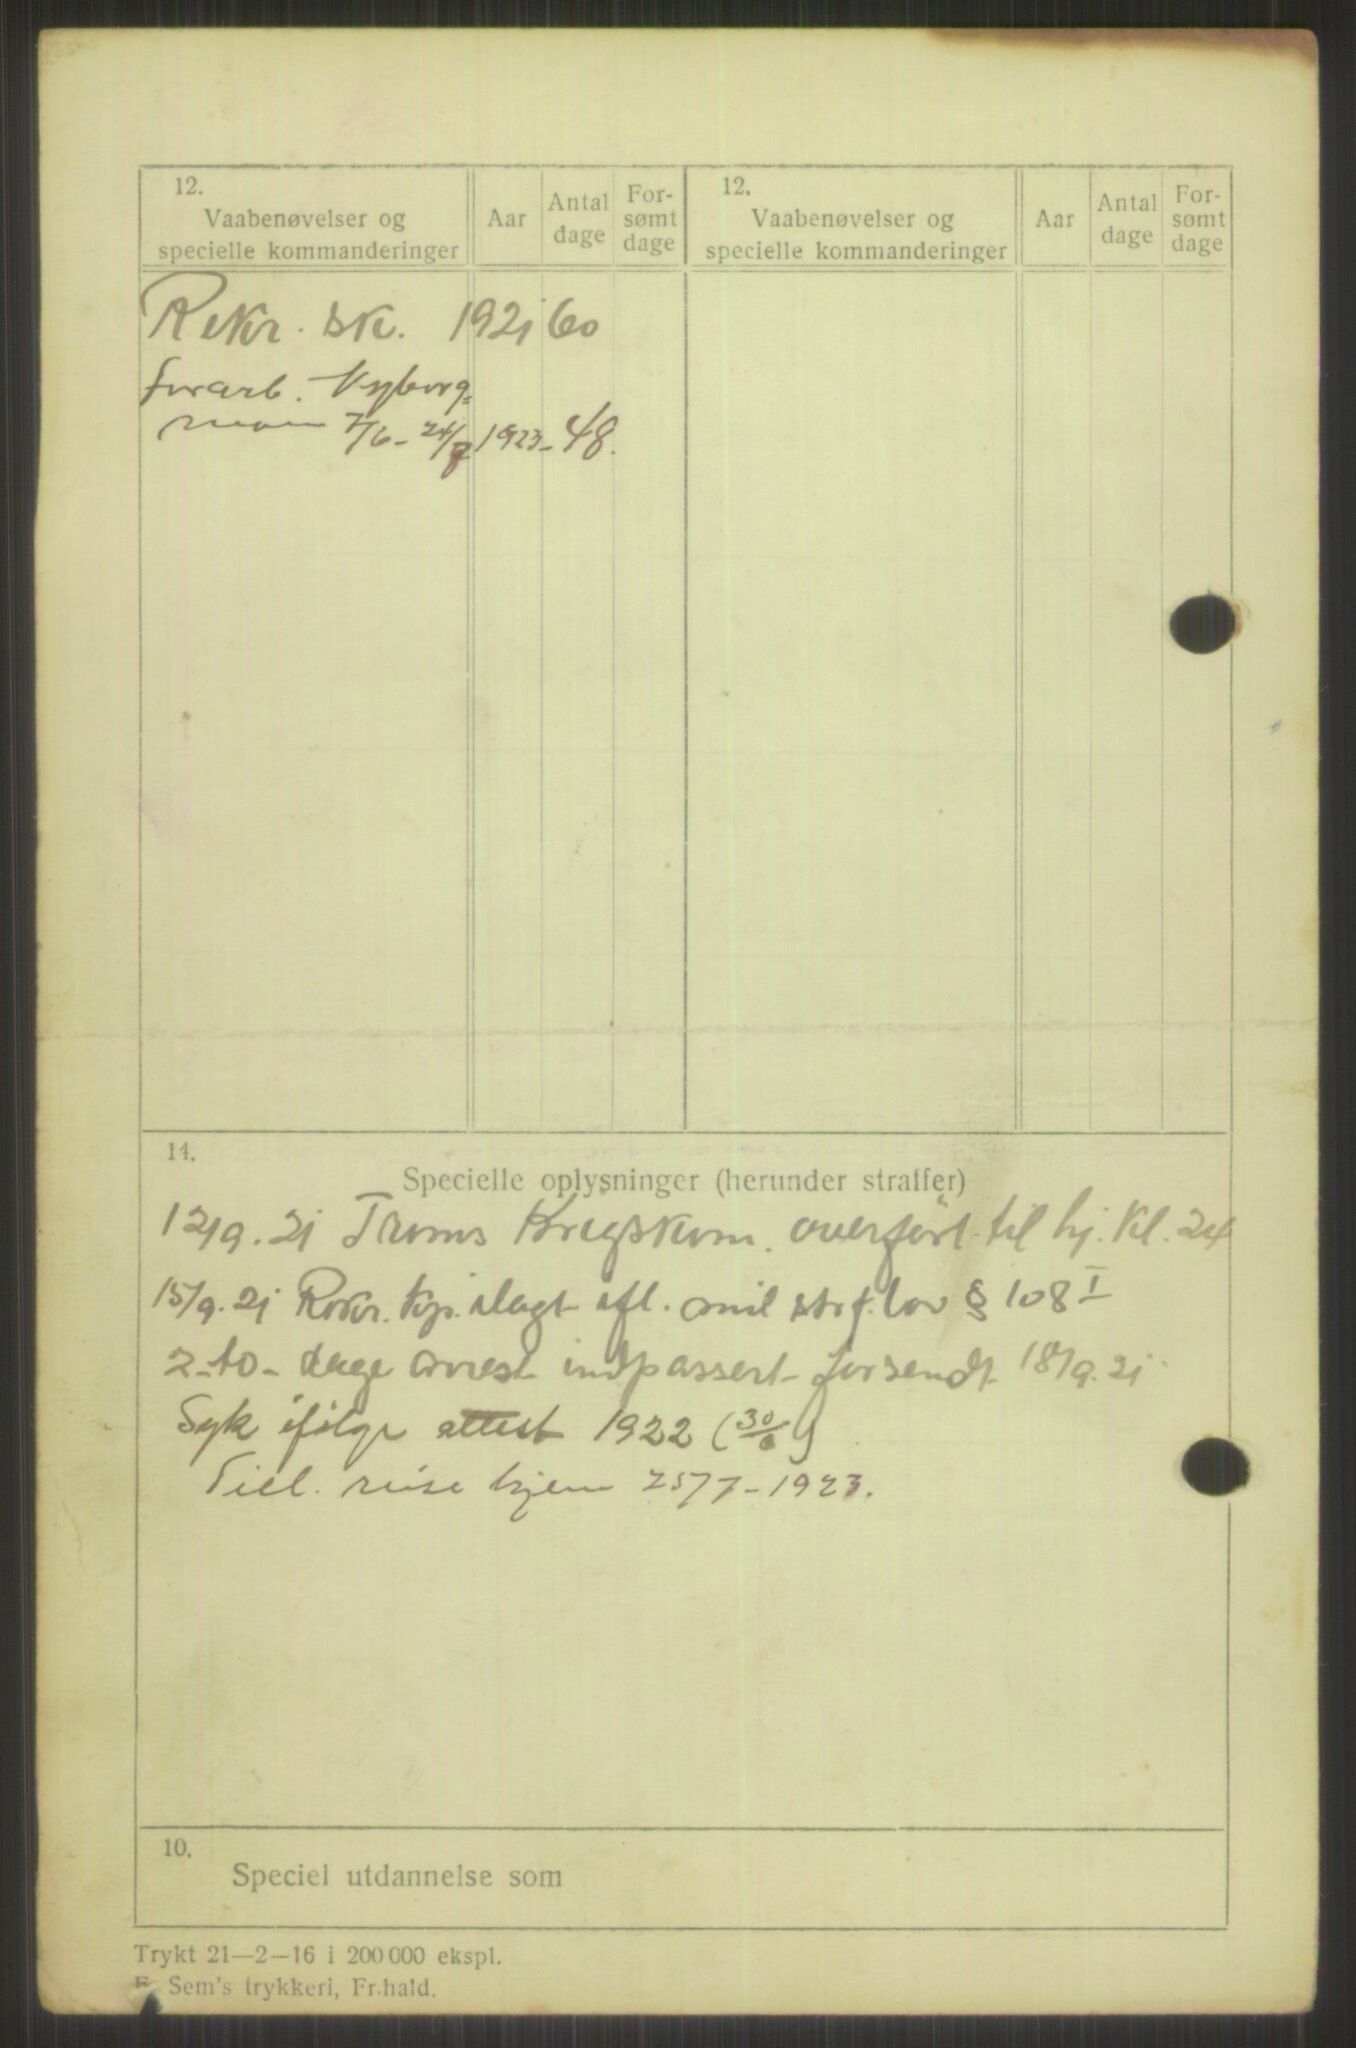 12. Vaabenøvelser og specielle kommanderinger Aar Antal dage For-sømt dage
12. Vaabenøvelser og specielle kommanderinger Aar Antal dage For-sømt dage
Rekr. sk. 1921 60
forarb. Nyborg-
moen 7/6 - 24/7 1923 - 48.
14.
Specielle oplysninger (herunder straffer)
12/9. 21 Troms Krigskom. overført til hj. kl. 24
15/9. 21 Rekr. kp. ilagt ifl. mil strf. lov § 108 I
2 - to - dage arrest indpassert forsendt 18/9. 21
Syk ifølge attest 1922 (30/6)
reise hjem 25/7 - 1923.
10.
Speciel utdannelse som
Trykt 21—2—16 i 200 000 ekspl.
Sem's trykkeri, Fr.hald.